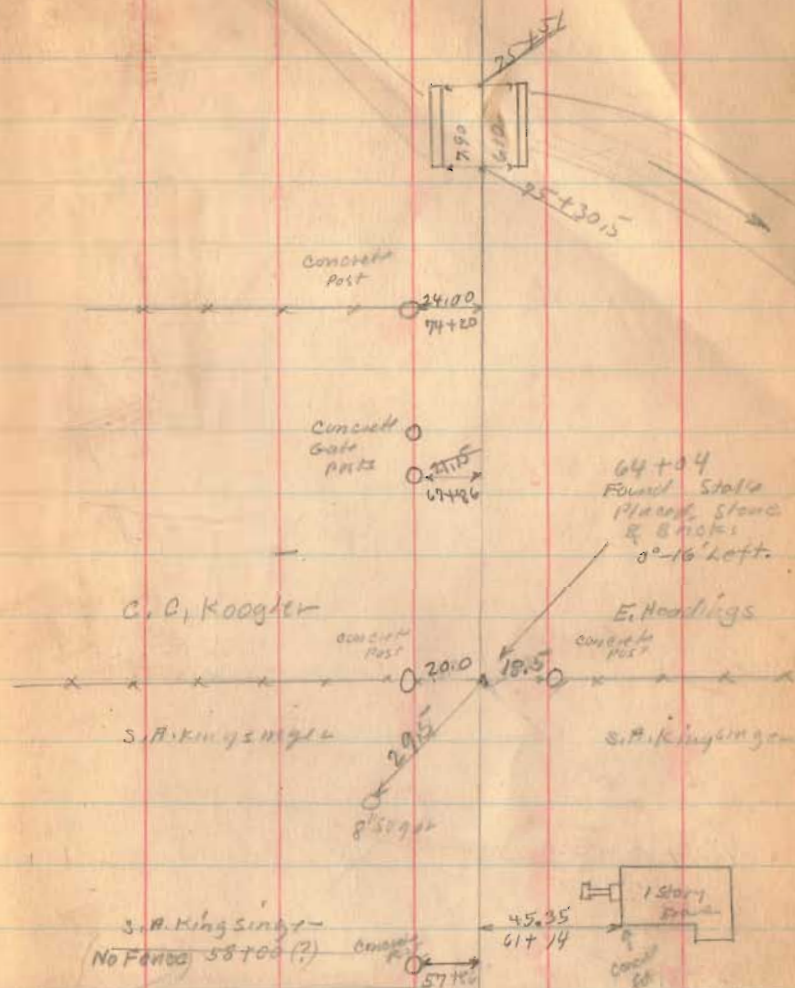 75+51
7.90
6.10
75+30.5
Concrete
Post
24.00
74+20
Concrete
Gate
Posts
21.15
67+86
64+04
Found Stake
Placed, Stone
& Bricks
0°-16' Left.
C. C. Koogler
E. Headings
Concrete
Post
20.0
18.5
Concrete
Post
S.A. Kingsinger
29.5
S.A. Kingsinger
8" Sugar
1 Story
Frame
S. A. Kingsinger
45.35
61+14
(No Fence) 58+00 (?)
Concrete
57+86
Concrete